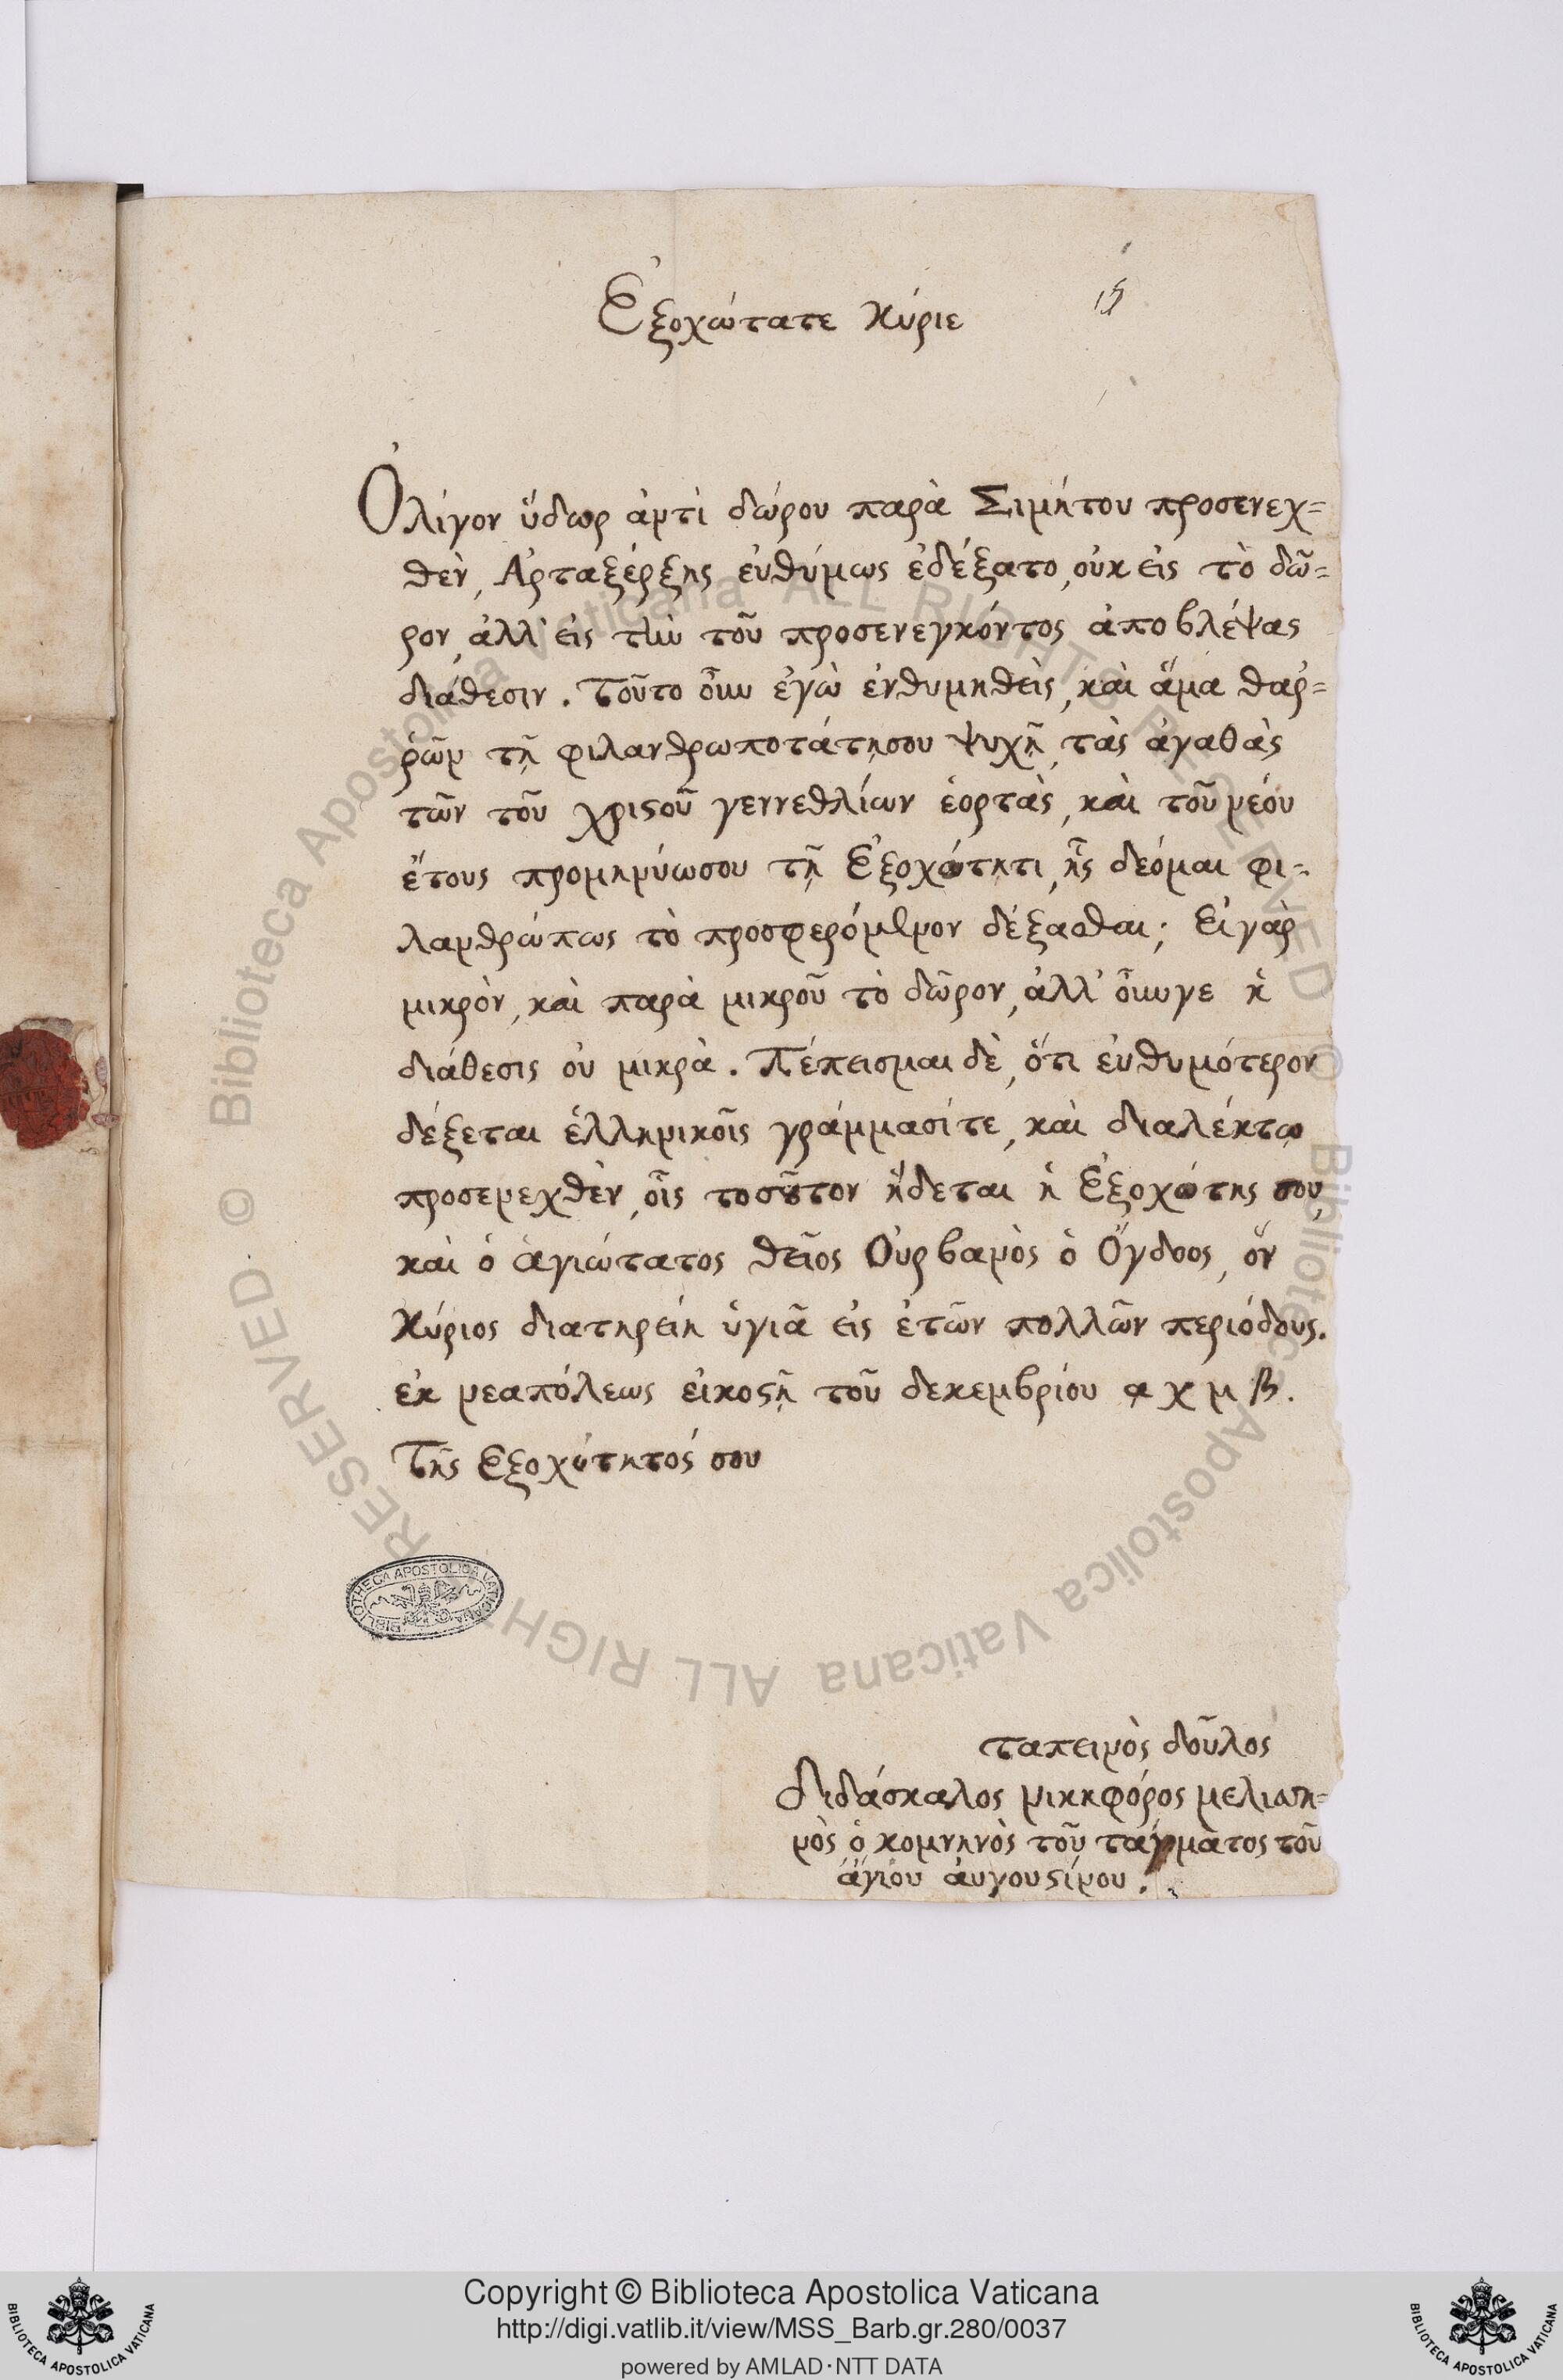 Ἐξοχώτατε Κύριε
15
Ὀλίγον ὕδωρ ἀντὶ δώρου παρὰ Σιμήτου προσενεχ=
θὲν, Ἀρταξέρξης εὐθύμως ἐδέξατο, οὐκ εἰς τὸ δῶ=
ρον, ἀλλ' εἰς τὴν τοῦ προσενεγκόντος ἀποβλέψας
διάθεσιν. Τοῦτο οὖν ἐγὼ ἐνθυμηθεὶς, καὶ ἅμα θαῤ=
ῥῶν τῇ φιλανθρωποτάτῃσου ψυχῇ, τὰς ἀγαθὰς
τῶν τοῦ χριϛοῦ γεννεθλίων ἑορτὰς, καὶ τοῦ νέου
ἔτους προμηνύωσου τῇ Ἐξοχότητι, ἧς δεόμαι φι=
λανθρώπως τὸ προσφερόμενον δέξασθαι; Εἰ γὰρ
μικρὸν, καὶ παρὰ μικροῦ τὸ δῶρον, ἀλλ' οὖνγε ἡ
διάθεσις οὐ μικρὰ. Πέπεισμαι δὲ, ὅτι εὐθυμότερον
δέξεται ἑλληνικοῖς γράμμασίτε, καὶ διαλέκτῳ
προσενεχθὲν, οἷς τοσοῦτον ἥδεται ἡ Ἐξοχότης σου,
καὶ ὁ ἁγιώτατος θεῖος Οὐρβανὸς ὁ Ὄγδοος, ὅν
Κύριος διατηρείη ὑγιᾶ εἰς ἐτῶν πολλῶν περιόδους.
ἐκ νεαπόλεως εἰκοϛῇ τοῦ δεκεμβρίου α χ μ β.
Τῆς Ἐξοχότητός σου
ταπεινὸς δοῦλος
Διδάσκαλος νικηφόρος μελισση=
νὸς ὁ κομνηνὸς τοῦ τάγματος τοῦ
ἁγίου ἀυγουϛίνου.
BIBLIOTHECA APOSTOLICA VATICANA
© Biblioteca Apostolica Vaticana ALL RIGHTS RESERVED © Biblioteca Apostolica Vaticana ALL RIGHTS RESERVED
Copyright © Biblioteca Apostolica Vaticana
http://digi.vatlib.it/view/MSS_Barb.gr.280/0037
powered by AMLAD·NTT DATA
BIBLIOTECA APOSTOLICA VATICANA
BIBLIOTECA APOSTOLICA VATICANA